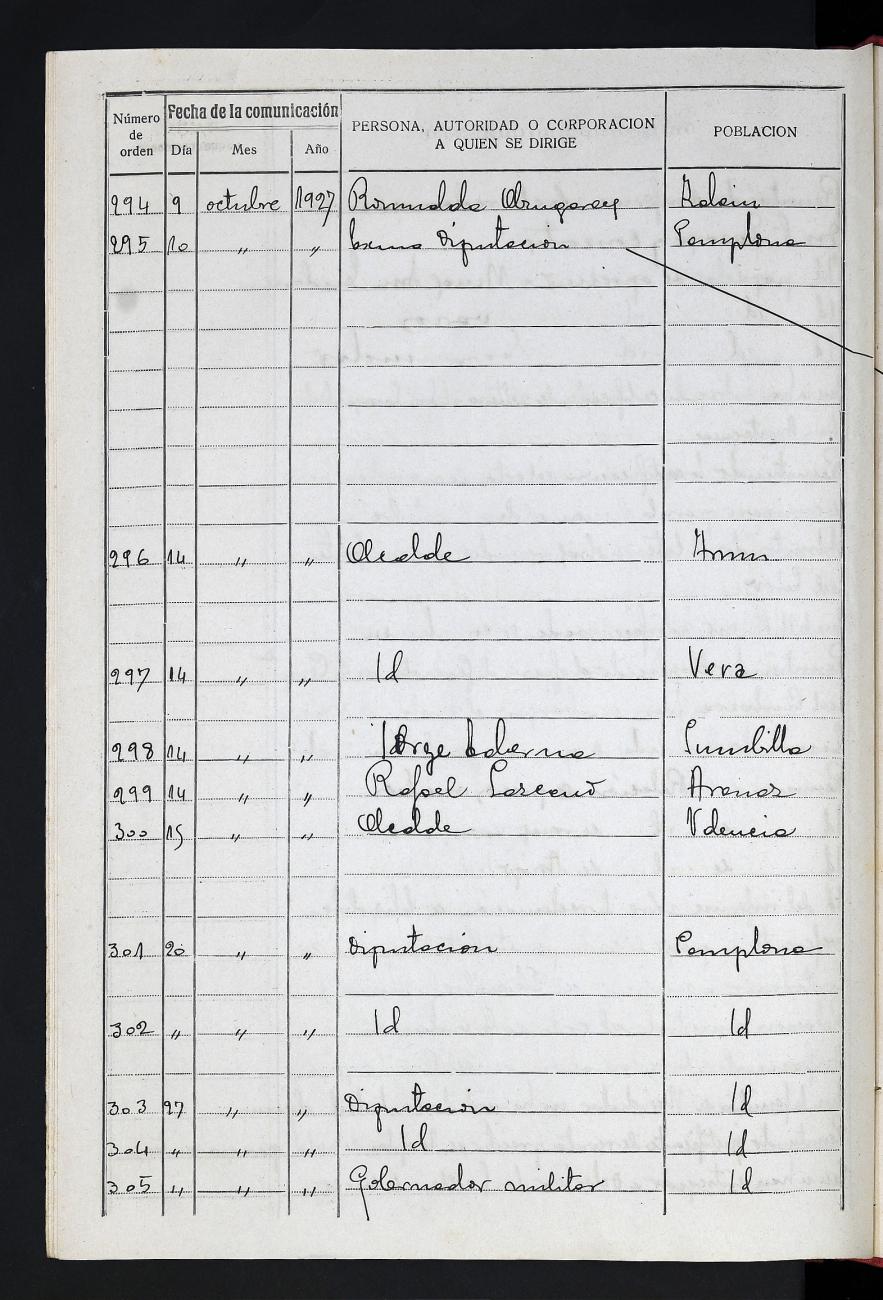 Número de orden | Fecha de la comunicación | PERSONA, AUTORIDAD O CORPORACION A QUIEN SE DIRIGE | POBLACION
Día | Mes | Año
294 | 9 | octubre | 1927 | Romualdo
295 | 10 | " | " | Excma Diputación | Pamplona
296 | 14 | " | " | Alcalde
297 | 14 | " | " | Id | Vera
298 | 14 | " | " | Jorge Taberna | Sumbilla
299 | 14 | " | " | Rafael | Aranaz
300 | 15 | " | " | Alcalde | Valencia
301 | 20 | " | " | Diputación | Pamplona
302 | " | " | " | Id | Id
303 | 27 | " | " | Diputación | Id
304 | " | " | " | Id | Id
305 | " | " | " | Gobernador militar | Id